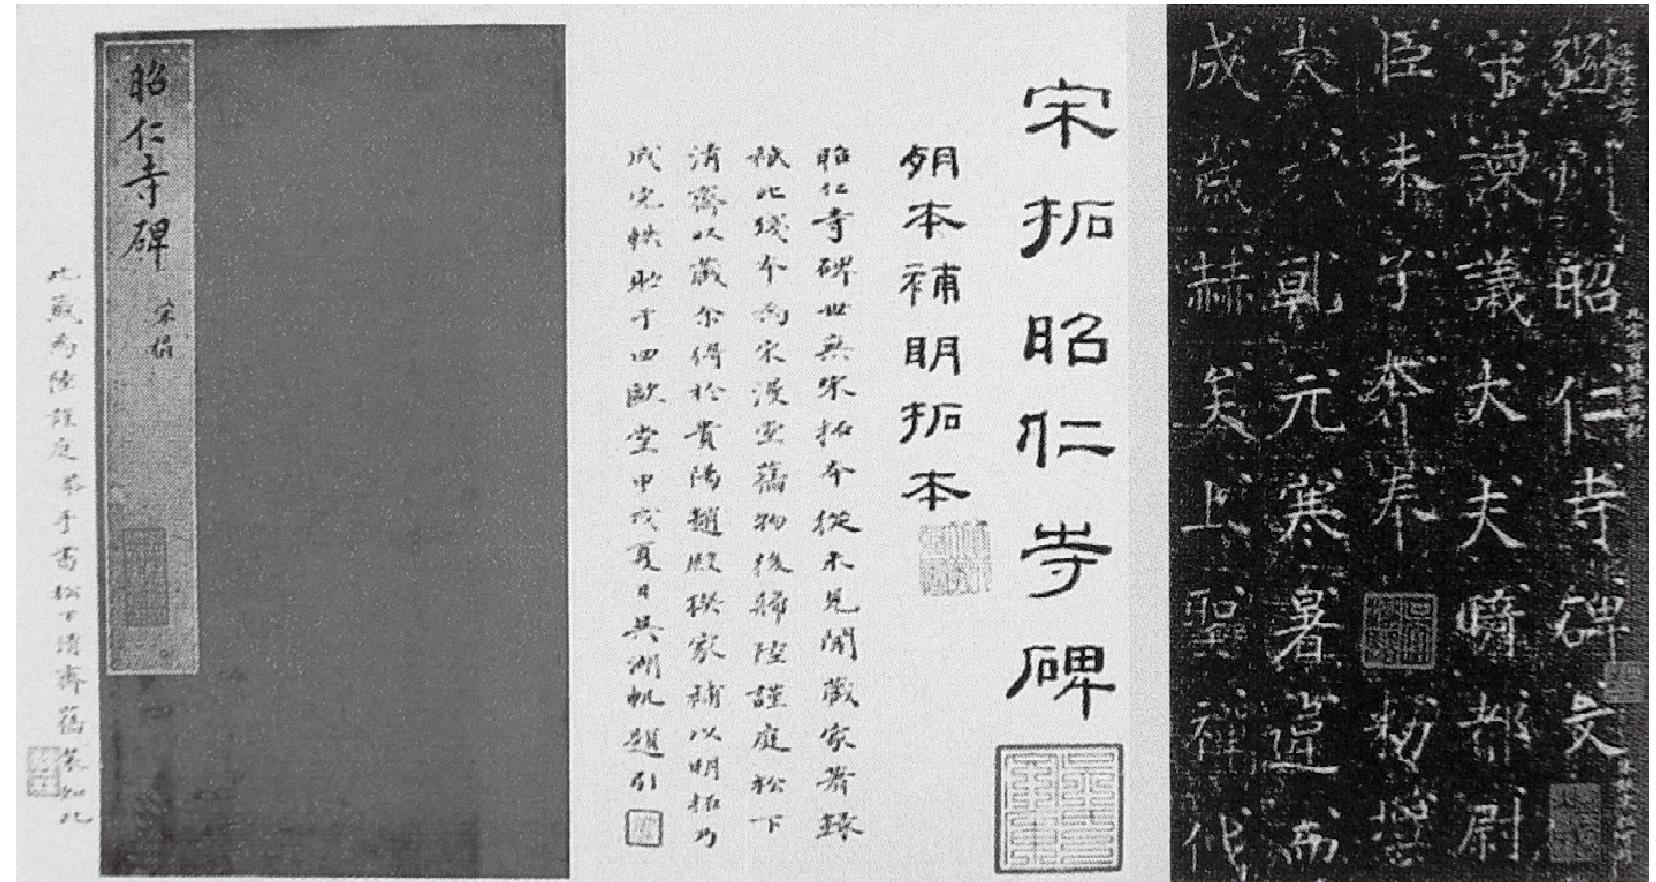 豳州昭仁寺碑文
守諫議大夫騎都尉
臣朱子奢奉 勑撰
大哉乾元寒暑運而
成歲赫矣上聖禪代
宋拓昭仁寺碑
朙本補明拓本
昭仁寺碑世無宋拓本從未見聞藏家著錄
祇此殘本為宋漫堂舊物後歸陸謹庭松下
清齋以藏余得於貴陽趙殿撰家補以明拓乃
成完帙貽于四歐堂甲戌夏日吳湖帆題引
昭仁寺碑
宋搨
此籖為陸謹庭恭手書松下清齋舊裝如此